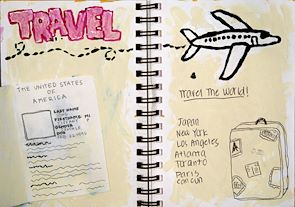 TRAVEL
THE UNITED STATES
OF
AMERICA
LAST NAME
FIRST NAME MI
Travel The World!
Japan
New York
Los Angeles
Atlanta
Toronto
Paris
can cun
A